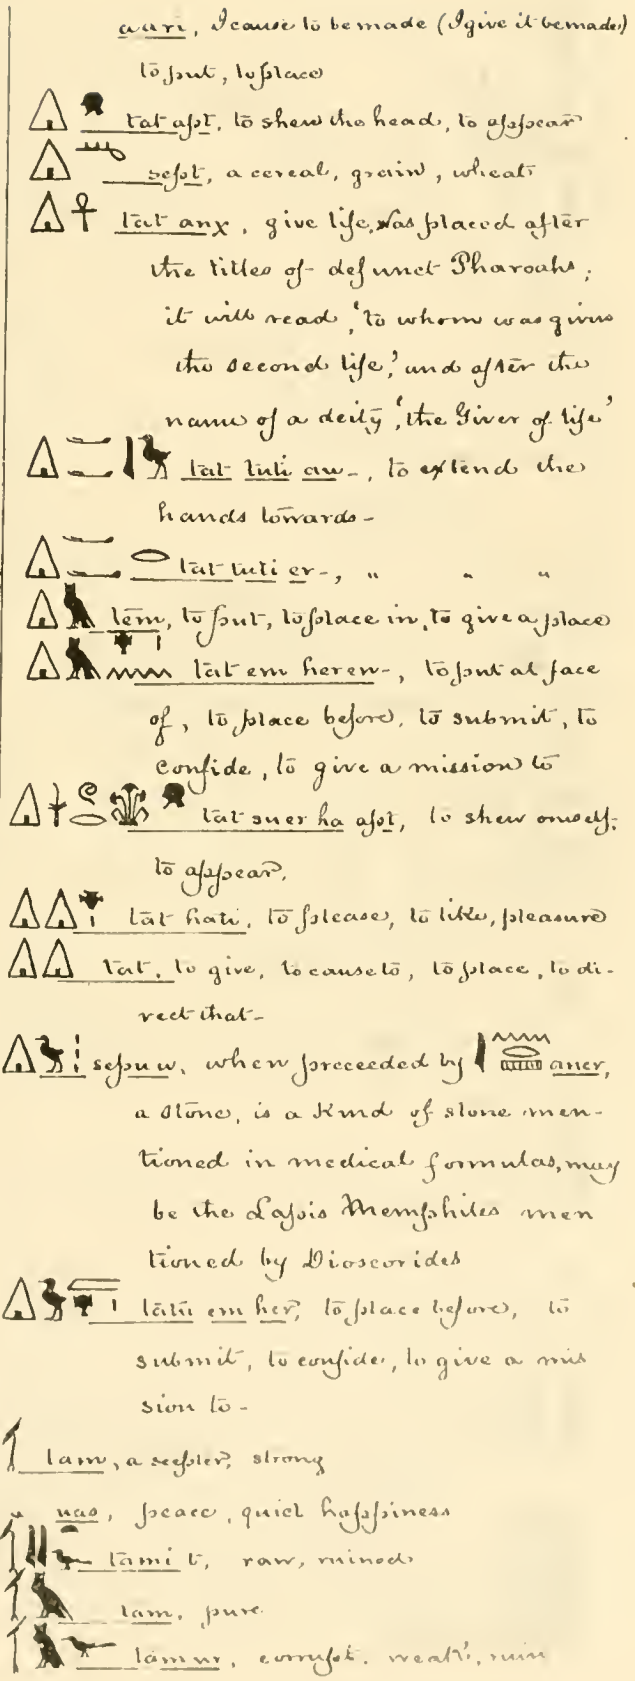 aari, I cause to be made (I give it be made)
to put, to place
tat apt, to shew the head, to appear
sept, a cereal, grain, wheat
tat anχ, give life, was placed after
the titles of defunct Pharoahs,
it will read, 'to whom was given
the second life,' and after the
name of a deity, 'the Giver of life'
tat tuti au-, to extend the
hands towards-
tat tuti er-, " " "
tem, to put, to place in, to give a place
tat em heren-, to put at face
of, to place before, to submit, to
confide, to give a mission to
tat suer ha apt, to shew oneself,
to appear,
tat hati, to please, to like, pleasure
tat, to give, to cause to, to place, to di-
rect that-
sepuw, when preceeded by aner,
a stone, is a kind of stone men-
tioned in medical formulas, may
be the Lapis Memphites men
tioned by Dioscorides
tatu em her, to place before, to
submit, to confide, to give a mis
sion to-
tam, a scepter, strong
uas, peace, quiet happiness
tami t, raw, ruined
tam, pure
tamur, corrupt, weak, ruin